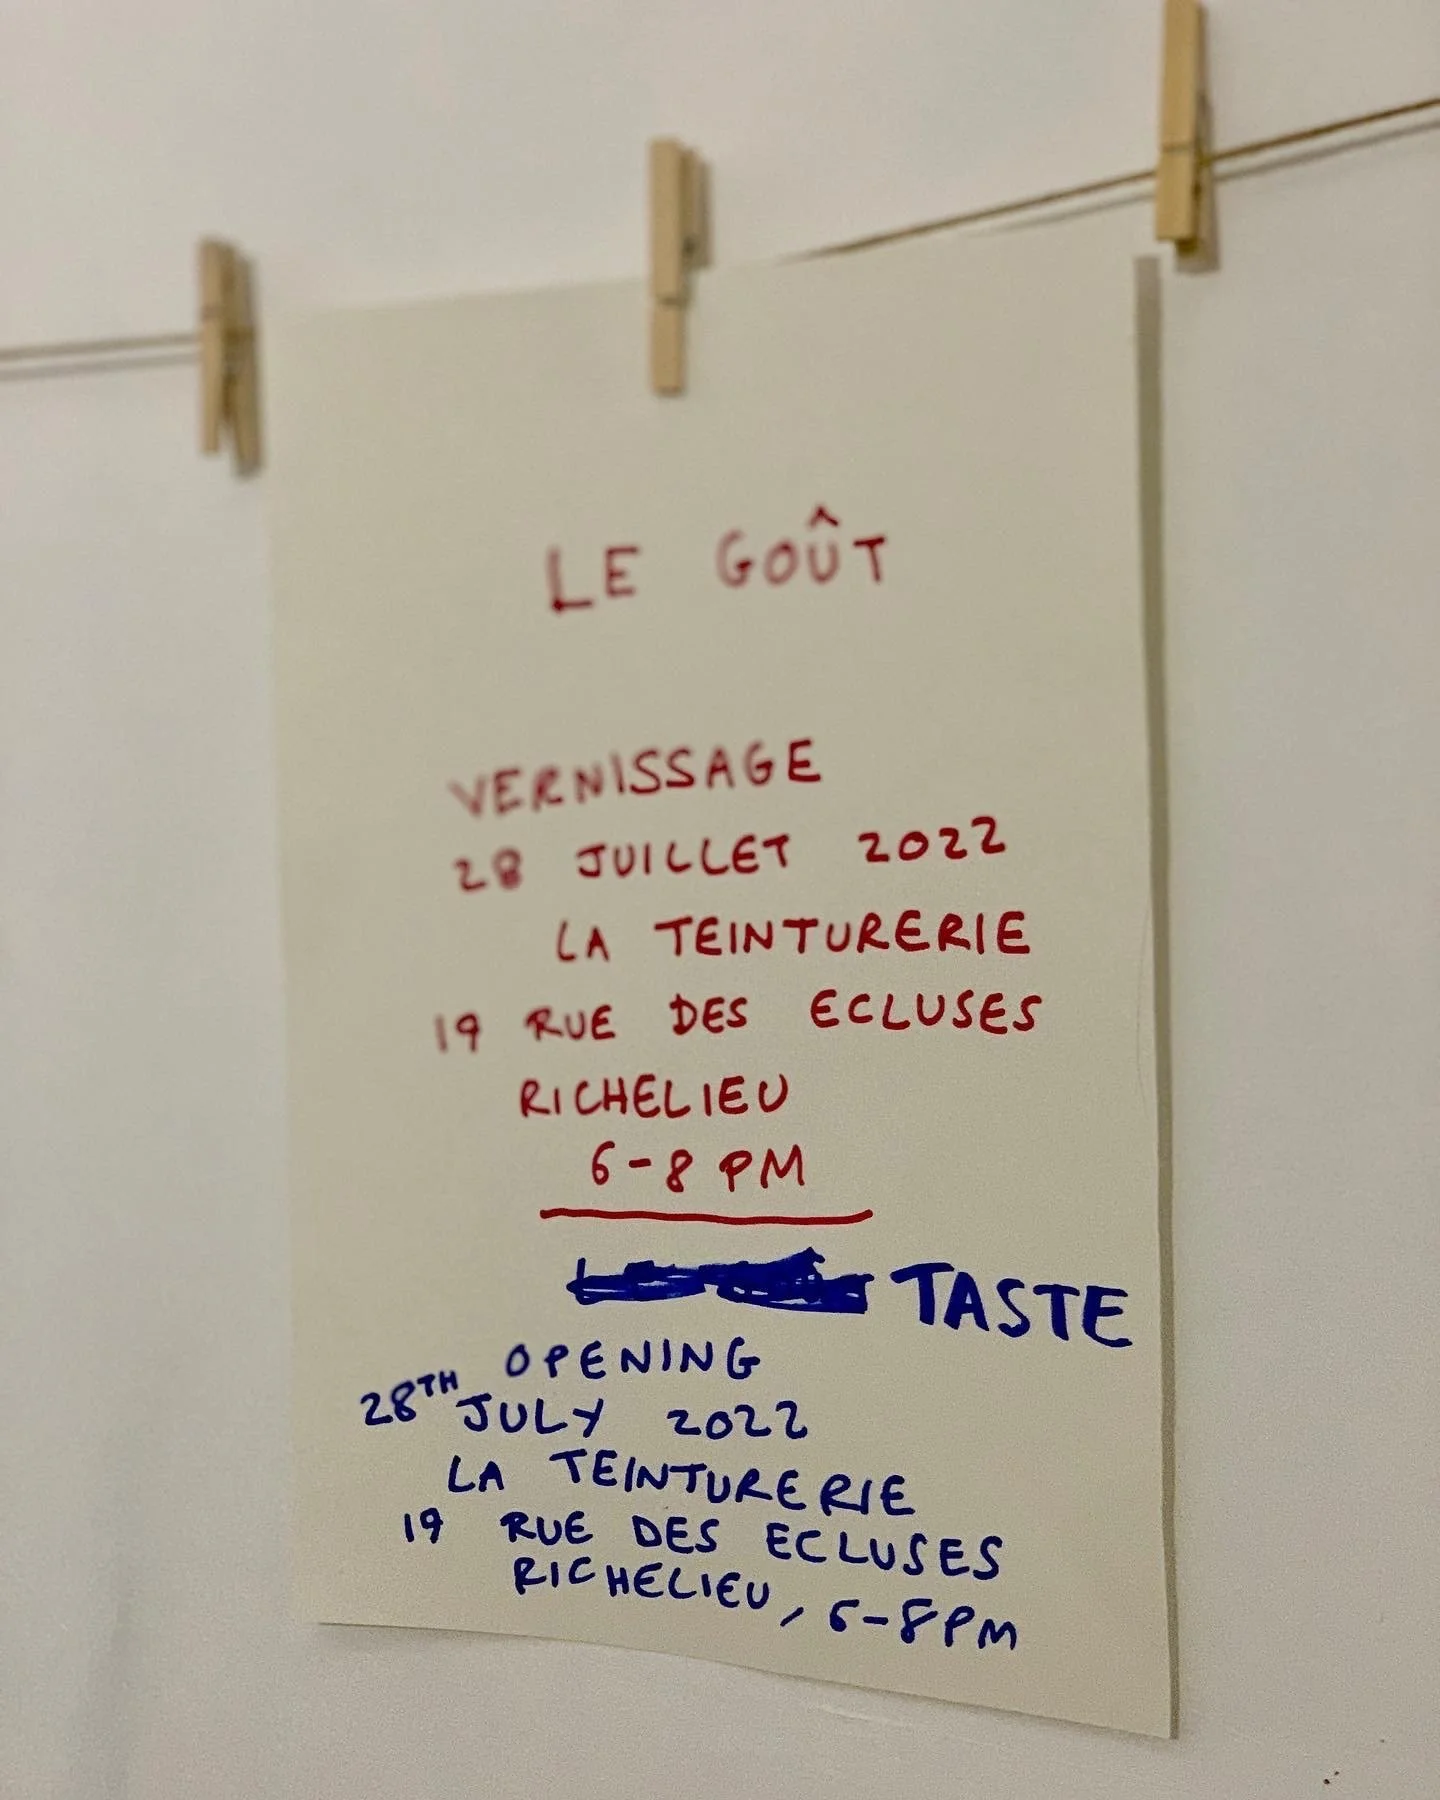 LE GOÛT
VERNISSAGE
28 JUILLET 2022
LA TEINTURERIE
19 RUE DES ECLUSES
RICHELIEU
6-8 PM
TASTE
OPENING
28TH JULY 2022
LA TEINTURERIE
19 RUE DES ECLUSES
RICHELIEU, 6-8PM